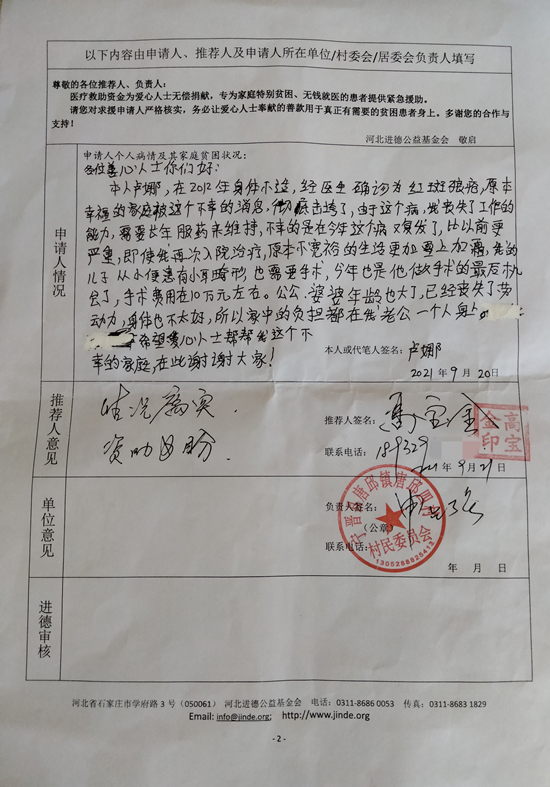 以下内容由申请人、推荐人及申请人所在单位/村委会/居委会负责人填写
尊敬的各位推荐人、负责人:
医疗救助资金为爱心人士无偿捐献,专为家庭特别贫困、无钱就医的患者提供紧急援助。
请您对求援申请人严格核实,务必让爱心人士奉献的善款用于真正有需要的贫困患者身上。多谢您的合作与
支持!
河北进德公益基金会 敬启
申请人情况
申请人个人病情及其家庭贫困状况:
各位善心人士你们好:
本人卢娜,在2012年身体不适,经医生确诊为红斑狼疮,原本
幸福的家庭被这个不幸的消息,彻底击垮了,由于这个病,我丧失了工作的
能力,需要长年服药来维持,不幸的是在今年这个病又复发了,比以前更
严重,即使我再次入院治疗,原本不宽裕的生活更加雪上加霜,我的
儿子从小便患有小耳畸形也需要手术,今年也是他做手术的最后机
会了,手术费用在10万元左右。公公婆婆年龄也大了,已经丧失了劳
动力,身体也不太好,所以家中的负担都在我老公一个人身上
希望爱心人士帮帮我这个不
幸的家庭,在此谢谢大家!
本人或代笔人签名:卢娜
2021年9月20日
推荐人意见
情况属实
资助
推荐人签名:高宝金
高宝金印
联系电话:189329
2021年9月21
单位意见
负责人签名:
(公章)
联系电话:
宁晋县唐邱镇唐邱
村民委员会
年 月 日
进德审核
河北省石家庄市学府路3号(050061) 河北进德公益基金会 电话:0311-8686 0053 传真:0311-8683 1829
Email: info@jinde.org; http://www.jinde.org
- 2 -